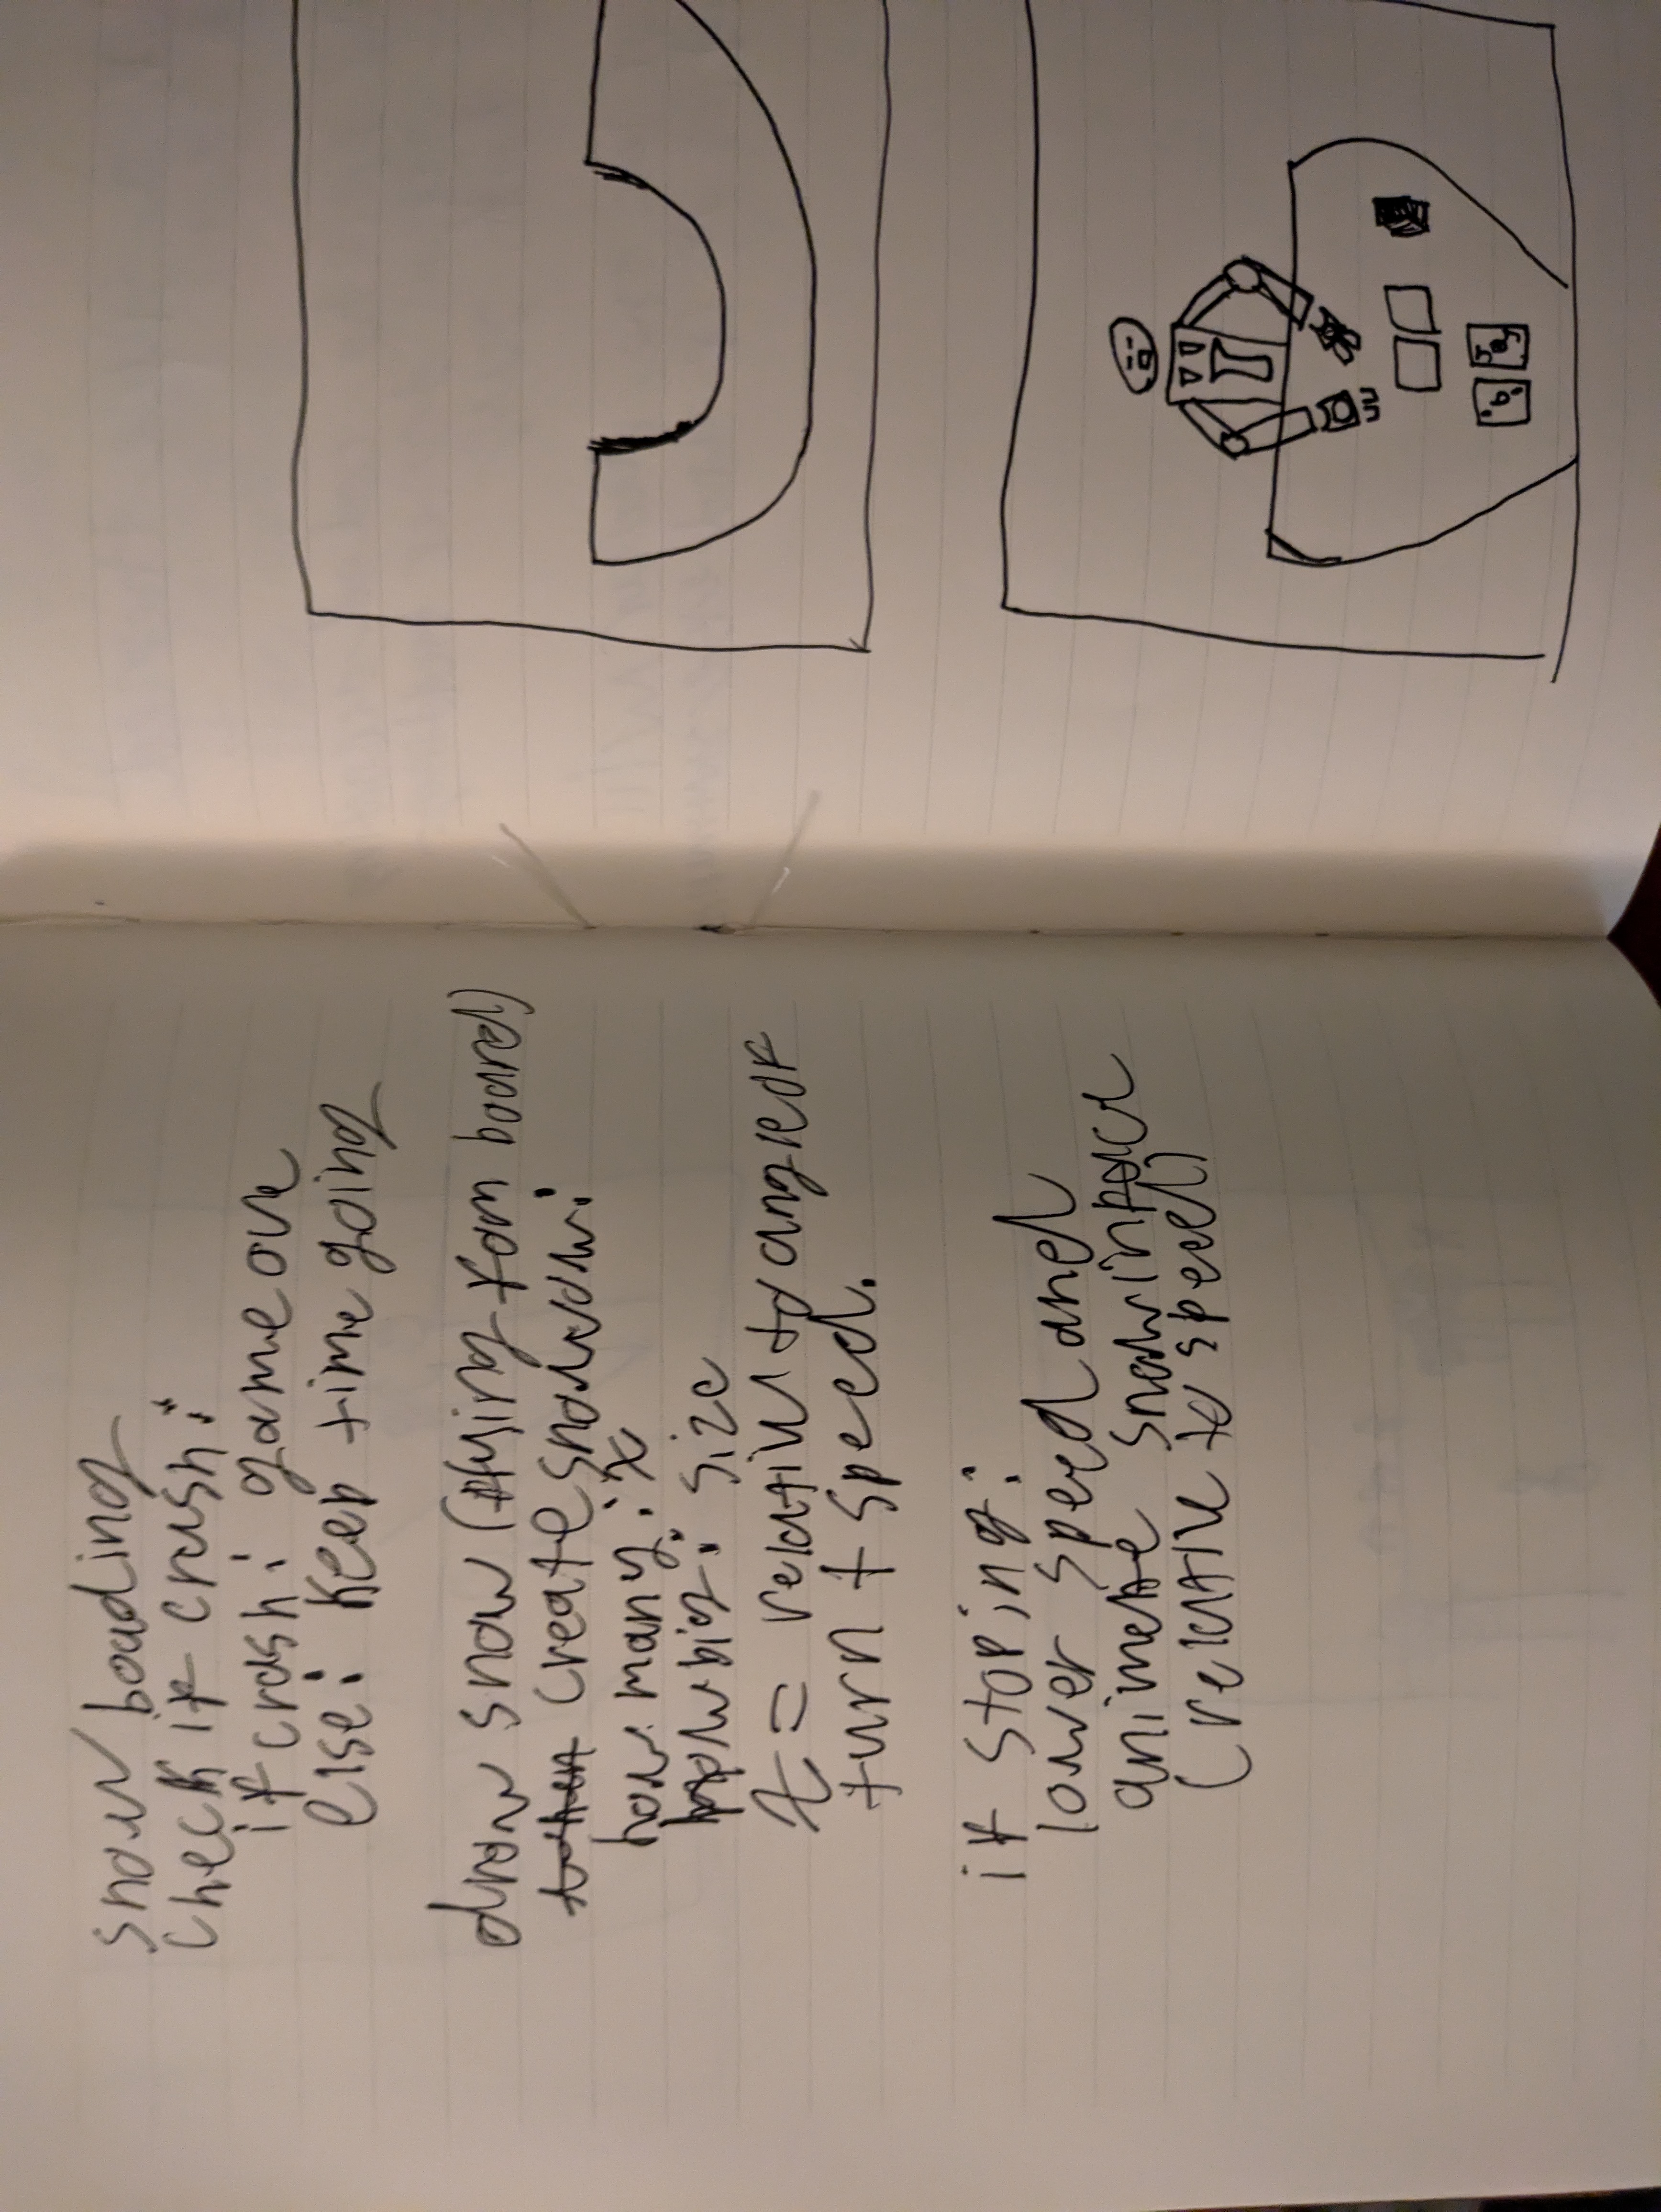 snow boading
check if crush:
if crash: game over
else: keep time going
draw snow (flying from board)
create snow
how many: x
how big: size
x = relative to ang
turn + speed.
if stoping:
lower speed and
animate snow
(relative to speed)